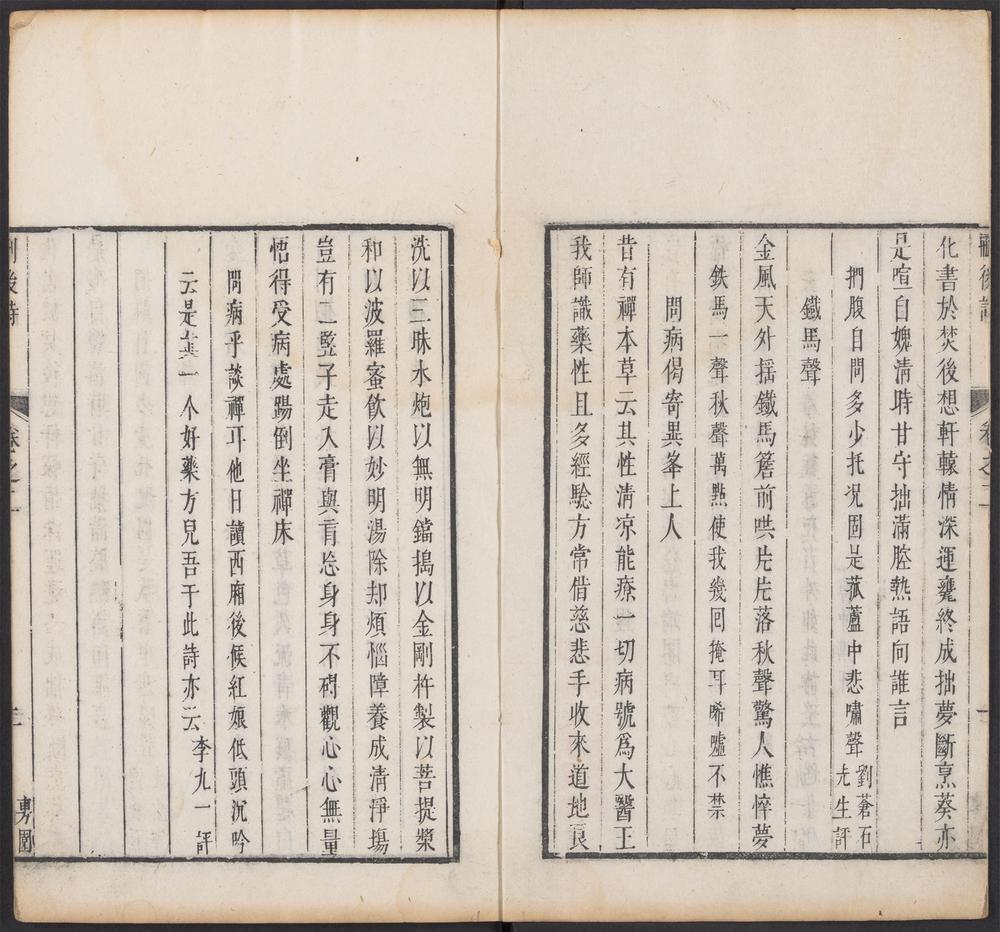 化書於焚後想軒轅情深運甕終成拙夢斷烹葵亦
是喧自媿清時甘守拙滿腔熱語向誰言
捫腹自問多少托况固是菰蘆中悲嘯聲
劉蒼石
先生評
鐵馬聲
金風天外搖鐵馬簷前哄片片落秋聲驚人憔悴夢
鉄馬一聲秋聲萬點使我幾回掩耳唏噓不禁
問病偈寄異峯上人
昔有禪本草云其性清凉能療一切病號爲大醫王
我師識藥性且多經驗方常借慈悲手收來道地良
洗以三昧水炮以無明鐺搗以金剛杵製以菩提漿
和以波羅蜜飲以妙明湯除却煩惱障養成清淨塲
豈有二豎子走入膏與肓忘身身不碍觀心心無量
悟得受病處踢倒坐禪床
問病乎談禪耳他日讀西廂後候紅娘低頭沉吟
云是英一个好藥方兒吾于此詩亦云
李九一評
卷之二